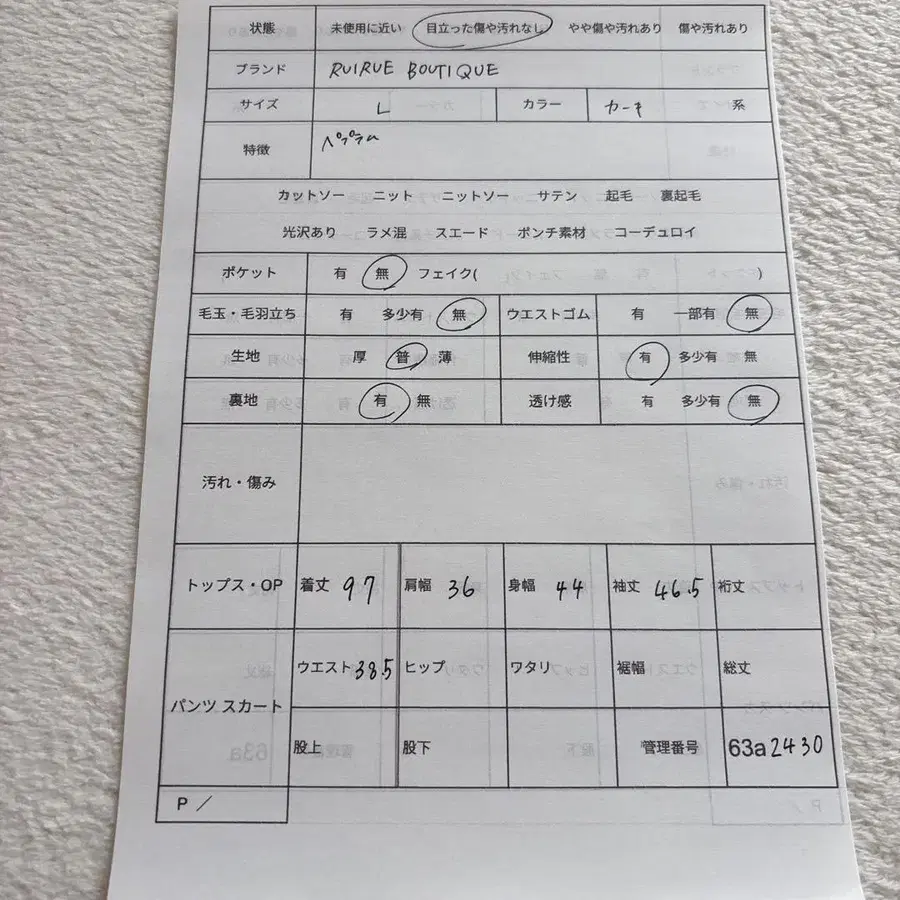 状態 未使用に近い 目立った傷や汚れなし やや傷や汚れあり 傷や汚れあり
ブランド RUIRUE BOUTIQUE
サイズ L カラー カーキ 系
特徴 ペプラム
カットソー ニット ニットソー サテン 起毛 裏起毛
光沢あり ラメ混 スエード ポンチ素材 コーデュロイ
ポケット 有 無 フェイク( )
毛玉・毛羽立ち 有 多少有 無 ウエストゴム 有 一部有 無
生地 厚 普 薄 伸縮性 有 多少有 無
裏地 有 無 透け感 有 多少有 無
汚れ・傷み
トップス・OP 着丈 97 肩幅 36 身幅 44 袖丈 46.5 裄丈
パンツ スカート ウエスト 38.5 ヒップ ワタリ 裾幅 総丈
股上 股下 管理番号 63a2430
P /